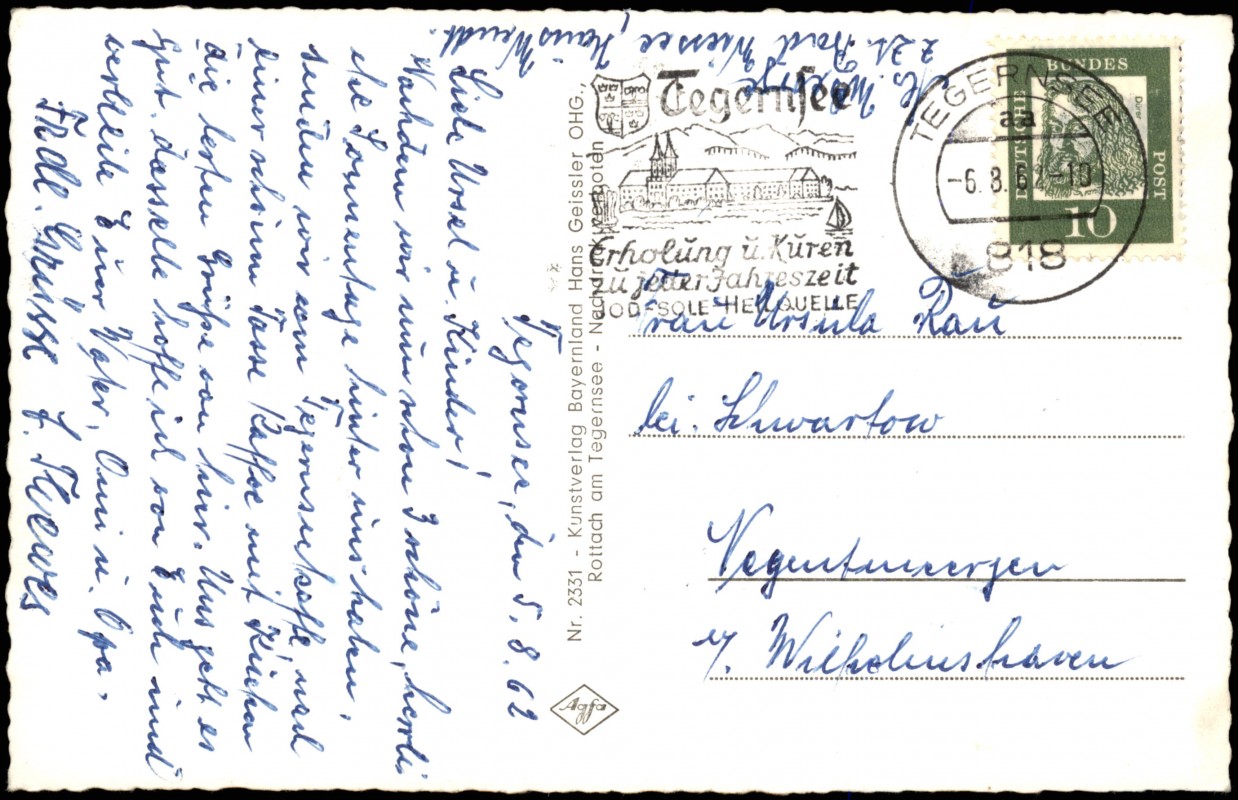 H. Meyer
z. Zt. Bad Wiessee, Haus Wendt.
Tegernsee, den 5. 8. 62
Liebe Ursel u. Kinder!
Nachdem wir nun schon 3 schöne, herrli
che Sonnentage hinter uns haben,
senden wir vom Tegernseekaffe, nach
einer schönen Tasse Kaffee mit Kuchen
die besten Grüße von hier. Uns geht es
gut. dasselbe hoffe ich von Euch und
verbleibe Euer Vater, Omi u. Opa.
Frdl. Grüsse
Nr. 2331 - Kunstverlag Bayernland Hans Geissler OHG.,
Rottach am Tegernsee - Nachdruck verboten
Agfa
Tegernsee
Erholung u. Kuren
zu jeder Jahreszeit
JOD-SOLE-HEILQUELLE
TEGERNSEE
aa
-6. 8. 62-10
818
DEUTSCHE BUNDES POST
Dürer
10
Frau Ursula Rau
bei: Schwartow
b/ Wilhelmshaven